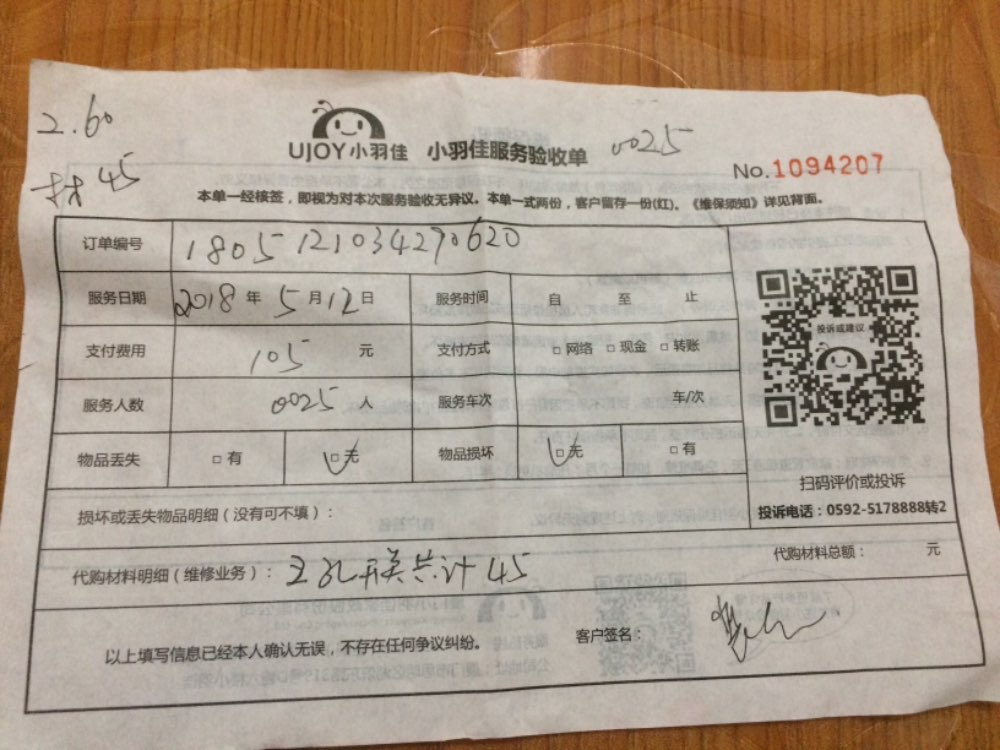 2.60
材45
UJOY小羽佳 小羽佳服务验收单 0025
No.1094207
本单一经核签，即视为对本次服务验收无异议。本单一式两份，客户留存一份(红)。《维保须知》详见背面。
订单编号 1805121034290620
服务日期 2018年5月12日 服务时间 自 至 止
投诉或建议
支付费用 105元 支付方式 □网络 □现金 □转账
服务人数 0025人 服务车次 车/次
物品丢失 □有 □无 物品损坏 □无 □有
扫码评价或投诉
投诉电话：0592-5178888转2
损坏或丢失物品明细（没有可不填）：
代购材料明细（维修业务）： 五孔开关共计45 代购材料总额： 元
以上填写信息已经本人确认无误，不存在任何争议纠纷。 客户签名：